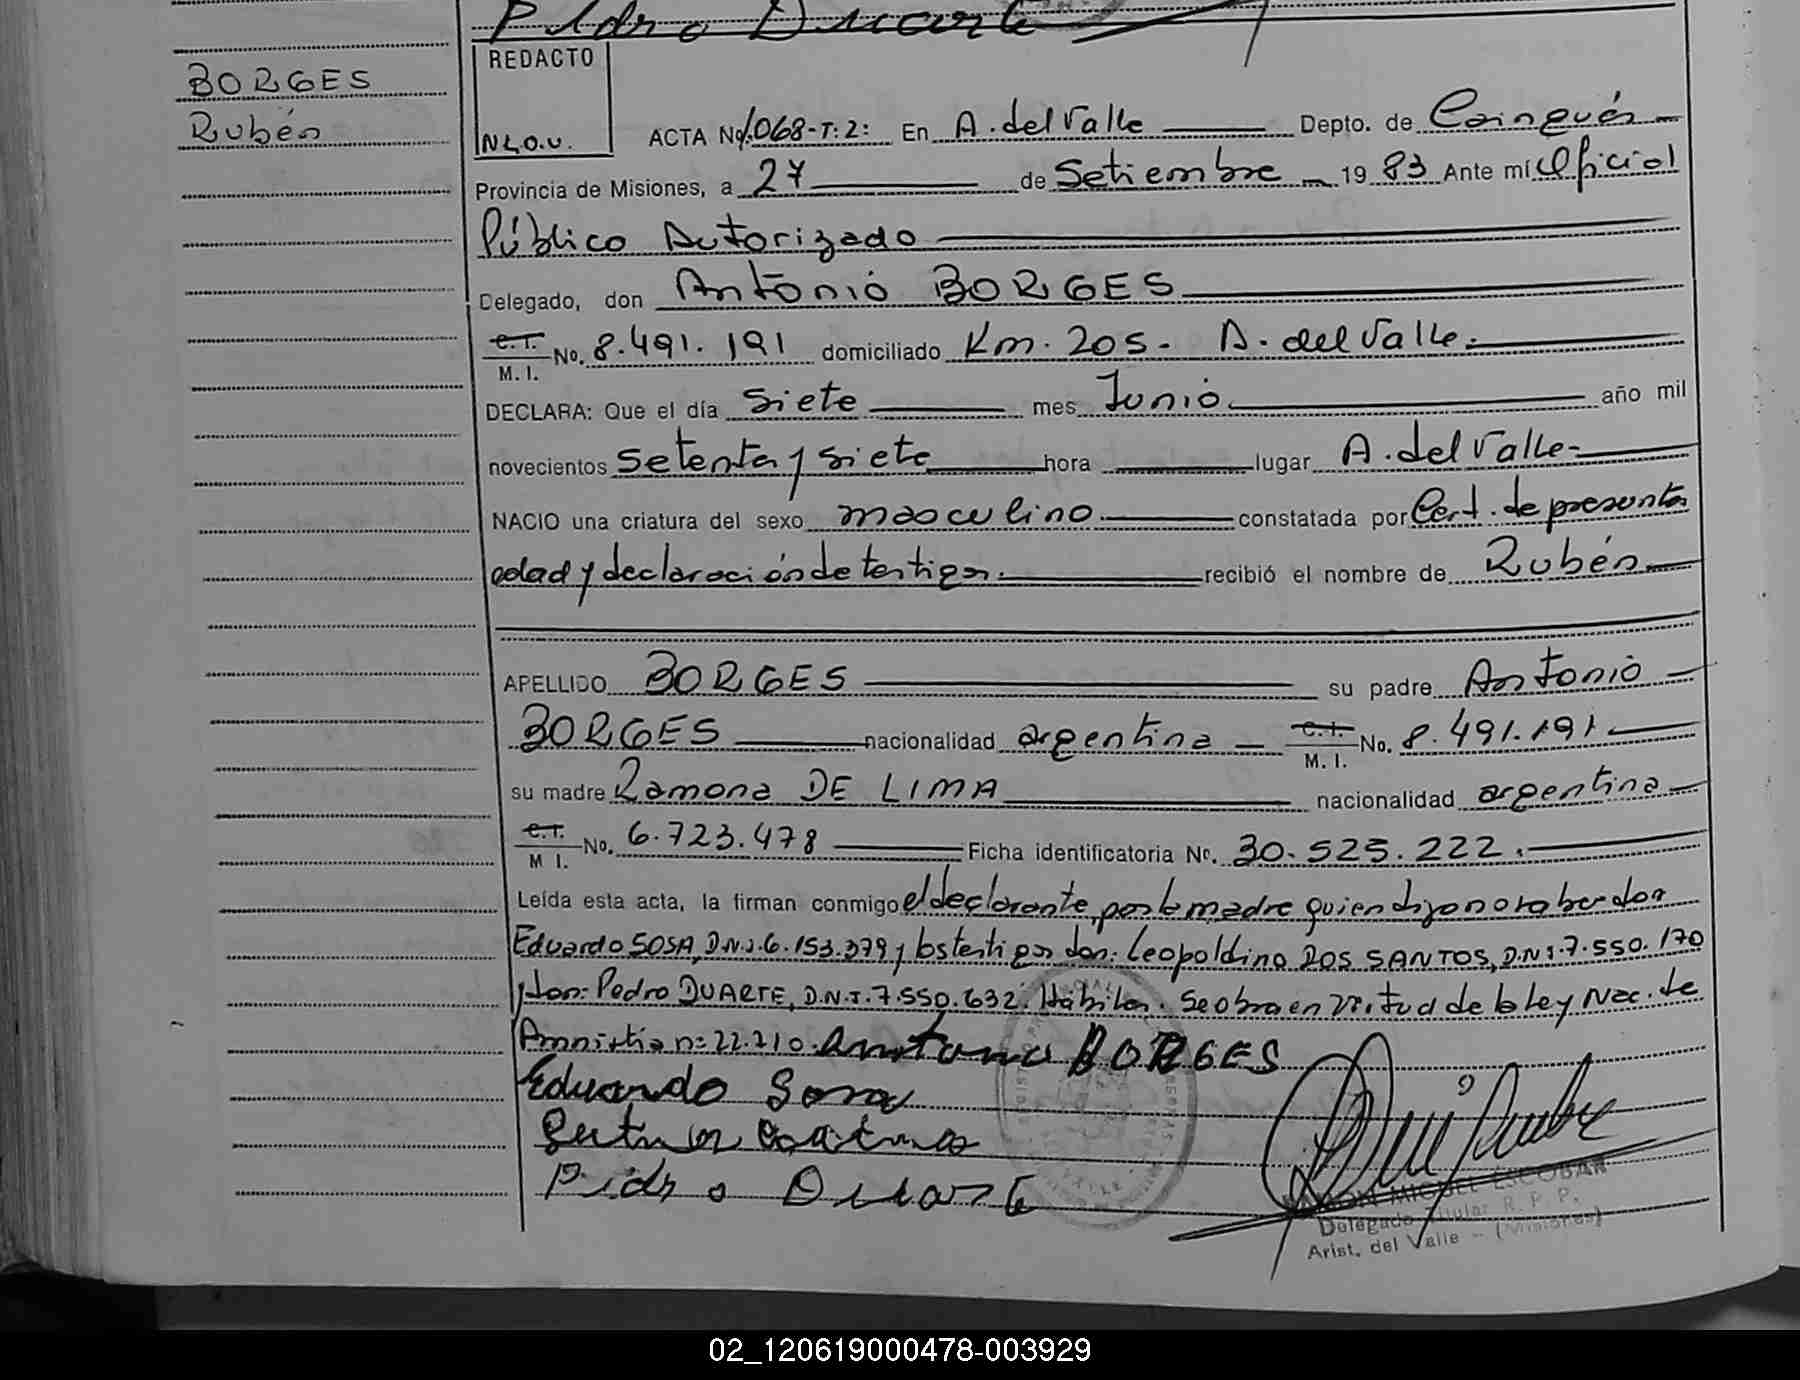 Pedro Duarte
BORGES
Rubén
REDACTO
N.L.O.V.
ACTA Nº 1.068-T:2: En A. del Valle Depto. de Cainguás
Provincia de Misiones, a 27 de Setiembre 19 83 Ante mí Oficial
Público Autorizado
Delegado, don Antonio BORGES
C.I. M.I. No. 8.491.191 domiciliado Km. 205. A. del Valle.
DECLARA: Que el día Siete mes Junio año mil
novecientos Setenta y siete hora lugar A. del Valle
NACIO una criatura del sexo masculino constatada por Cert. de presunta
edad y declaración de testigos. recibió el nombre de Rubén
APELLIDO BORGES su padre Antonio
BORGES nacionalidad argentina C.I. M.I. No. 8.491.191
su madre Ramona DE LIMA nacionalidad argentina
C.I. M I. No. 6.723.478 Ficha identificatoria Nº. 30.525.222.
Leída esta acta, la firman conmigo el declarante, por la madre quien dijo no saber don
Eduardo SOSA, D.N.I. 6.153.379 y los testigos don: Leopoldino DOS SANTOS, D.N.I. 7.550.170
y don: Pedro DUARTE, D.N.I. 7.550.632. Hábiles. Se obra en virtud de la ley Nac. de
Amnistía nº 22.210. Antonio BORGES
Eduardo Sosa
Pedro Duarte
RAMON MIGUEL ESCOBAR
Delegado Titular R. P. P.
Arist. del Valle - (Misiones)
02_120619000478-003929